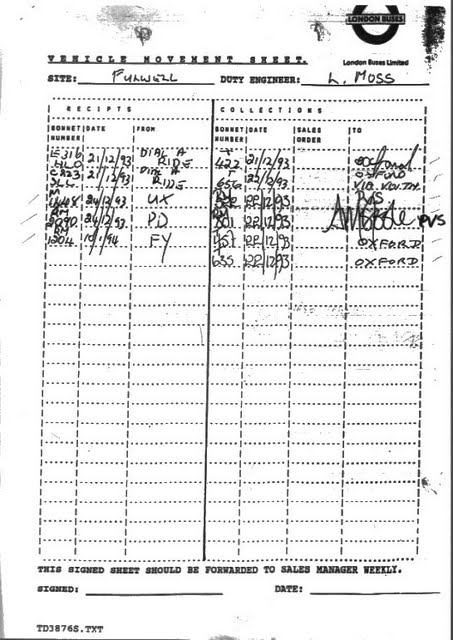 LONDON BUSES
VEHICLE MOVEMENT SHEET.
London Buses Limited
SITE: FULWELL DUTY ENGINEER: L. MOSS
RECEIPTS COLLECTIONS
BONNET NUMBER DATE FROM BONNET NUMBER DATE SALES ORDER TO
E316 HLO 21/12/93 DIAL A RIDE T 422 21/12/93
21/12/93 DIAL A RIDE T 656 22/12/93 OXFORD
M 1448 24/2/93 UX 22/12/93 PVS
RM 24/2/93 PD 801 22/12/93 PVS
RM 1204 FY 22/12/93 OXFORD
635 22/12/93 OXFORD
THIS SIGNED SHEET SHOULD BE FORWARDED TO SALES MANAGER WEEKLY.
SIGNED: DATE:
TD3876S.TXT